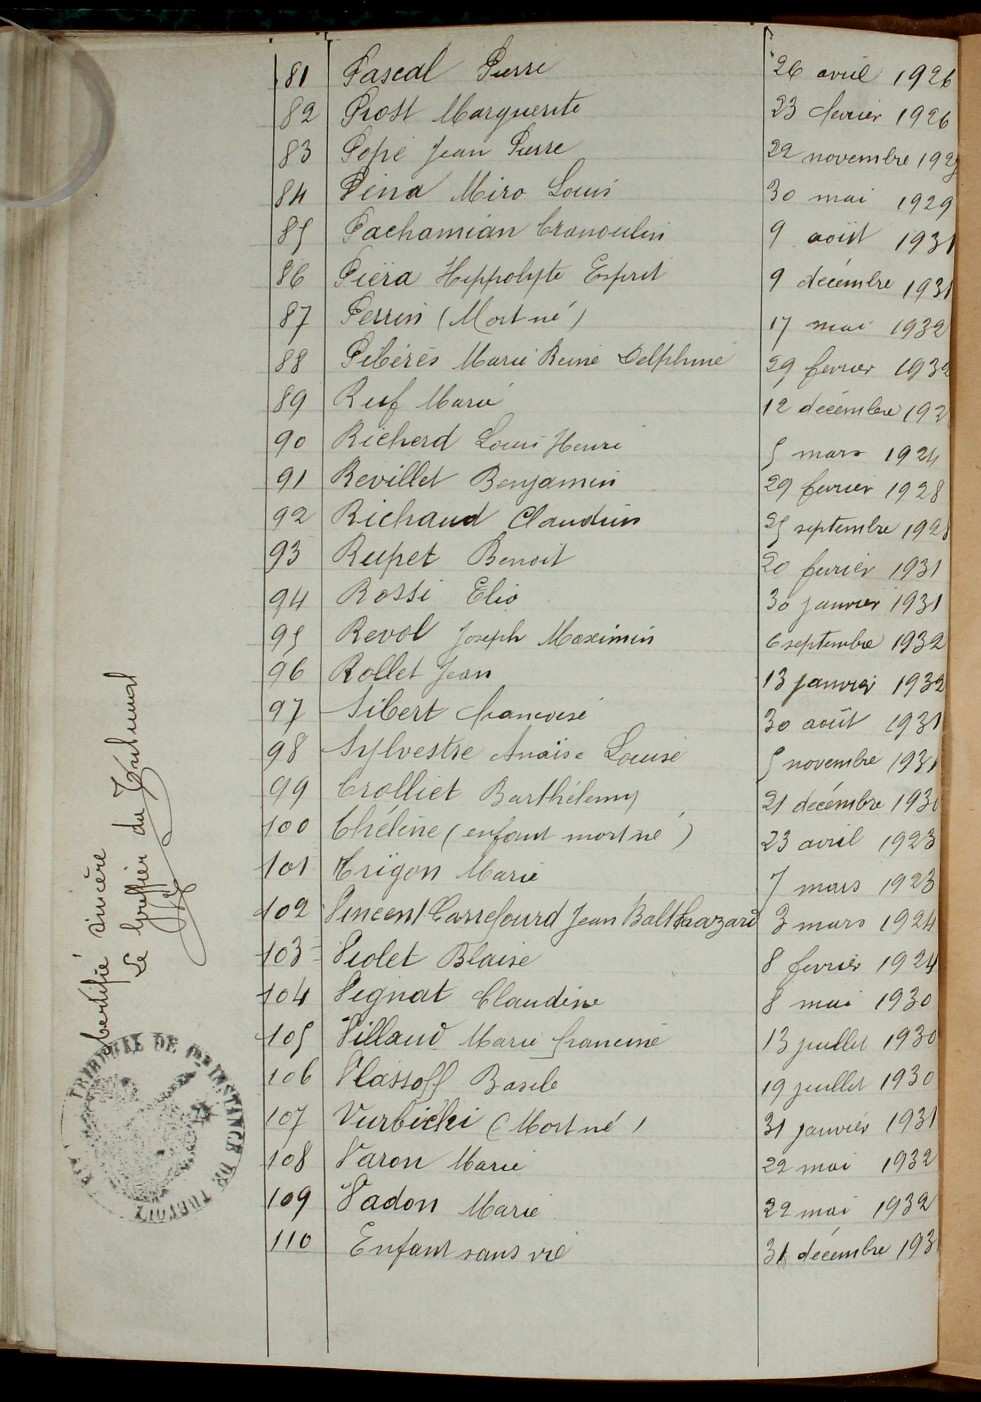 81 Pascal Pierre 26 avril 1926
82 Prost Marguerite 23 février 1926
83 Popé Jean Pierre 22 novembre
84 Pina Miro Louis 30 mai 1929
85 Pachamian 9 août 1931
86 Piéra Hippolyte Esprit 9 décembre 1931
87 Perrin (Mort né) 17 mai 1932
88 Pibérès Marie Reine Delphine 29 février 1932
89 Ruf Marie 12 décembre
90 Richerd Louis Henri 5 mars 1924
91 Revillet Benjamin 29 février 1928
92 Richaud Claudius 25 septembre 1928
93 Rupet Benoit 20 février 1931
94 Rossi Elio 30 janvier 1931
95 Revol Joseph Maximin 6 septembre 1932
96 Rollet Jean 13 janvier 1932
97 Sibert Françoise 30 août 1931
98 Sylvestre Anaïse Louise 5 novembre 1931
99 Trolliet Barthélemy 21 décembre
100 Thélène (enfant mort né) 23 avril 1923
101 Trigon Marie 7 mars 1923
102 Vincent Carrefourd Jean Balthazard 3 mars 1924
103 Violet Blaise 8 février 1924
104 Vignat Claudine 8 mai 1930
105 Villaud Marie Francine 13 juillet 1930
106 Vlassoff Basile 19 juillet 1930
107 Vurbicki (Mort né) 31 janvier 1931
108 Varon Marie 22 mai 1932
109 Vadon Marie 22 mai 1932
110 Enfant sans vie 31 décembre
Certifié sincère
Le Greffier du Tribunal
TRIBUNAL DE 1RE INSTANCE DE TREVOUX